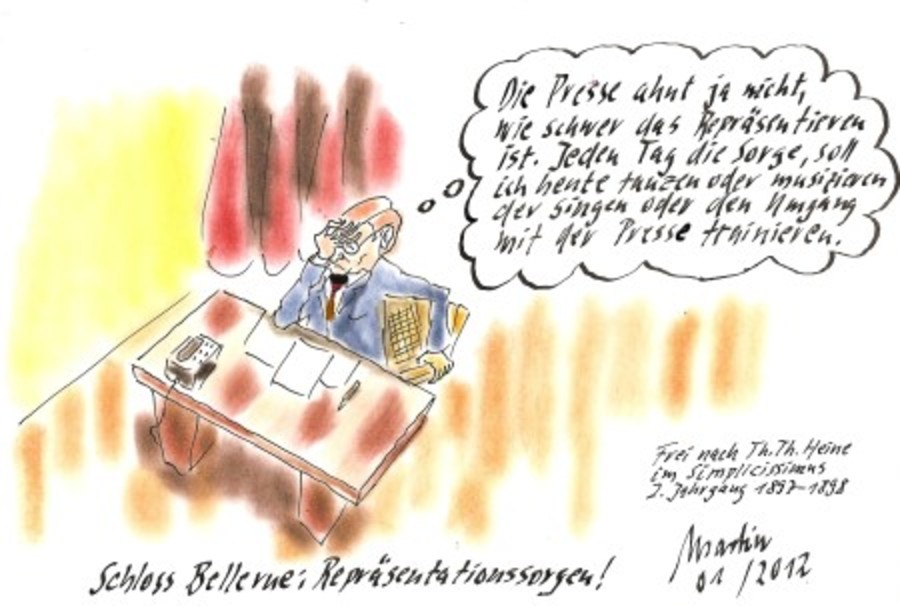 Die Presse ahnt ja nicht,
wie schwer das Repräsentieren
ist. Jeden Tag die Sorge, soll
ich heute tanzen oder musizieren
der singen oder den Umgang
mit der Presse trainieren.
Frei nach Th. Th. Heine
im Simplicissimus
2. Jahrgang 1897-1898
Martin
01/2012
Schloss Bellevue: Repräsentationssorgen!